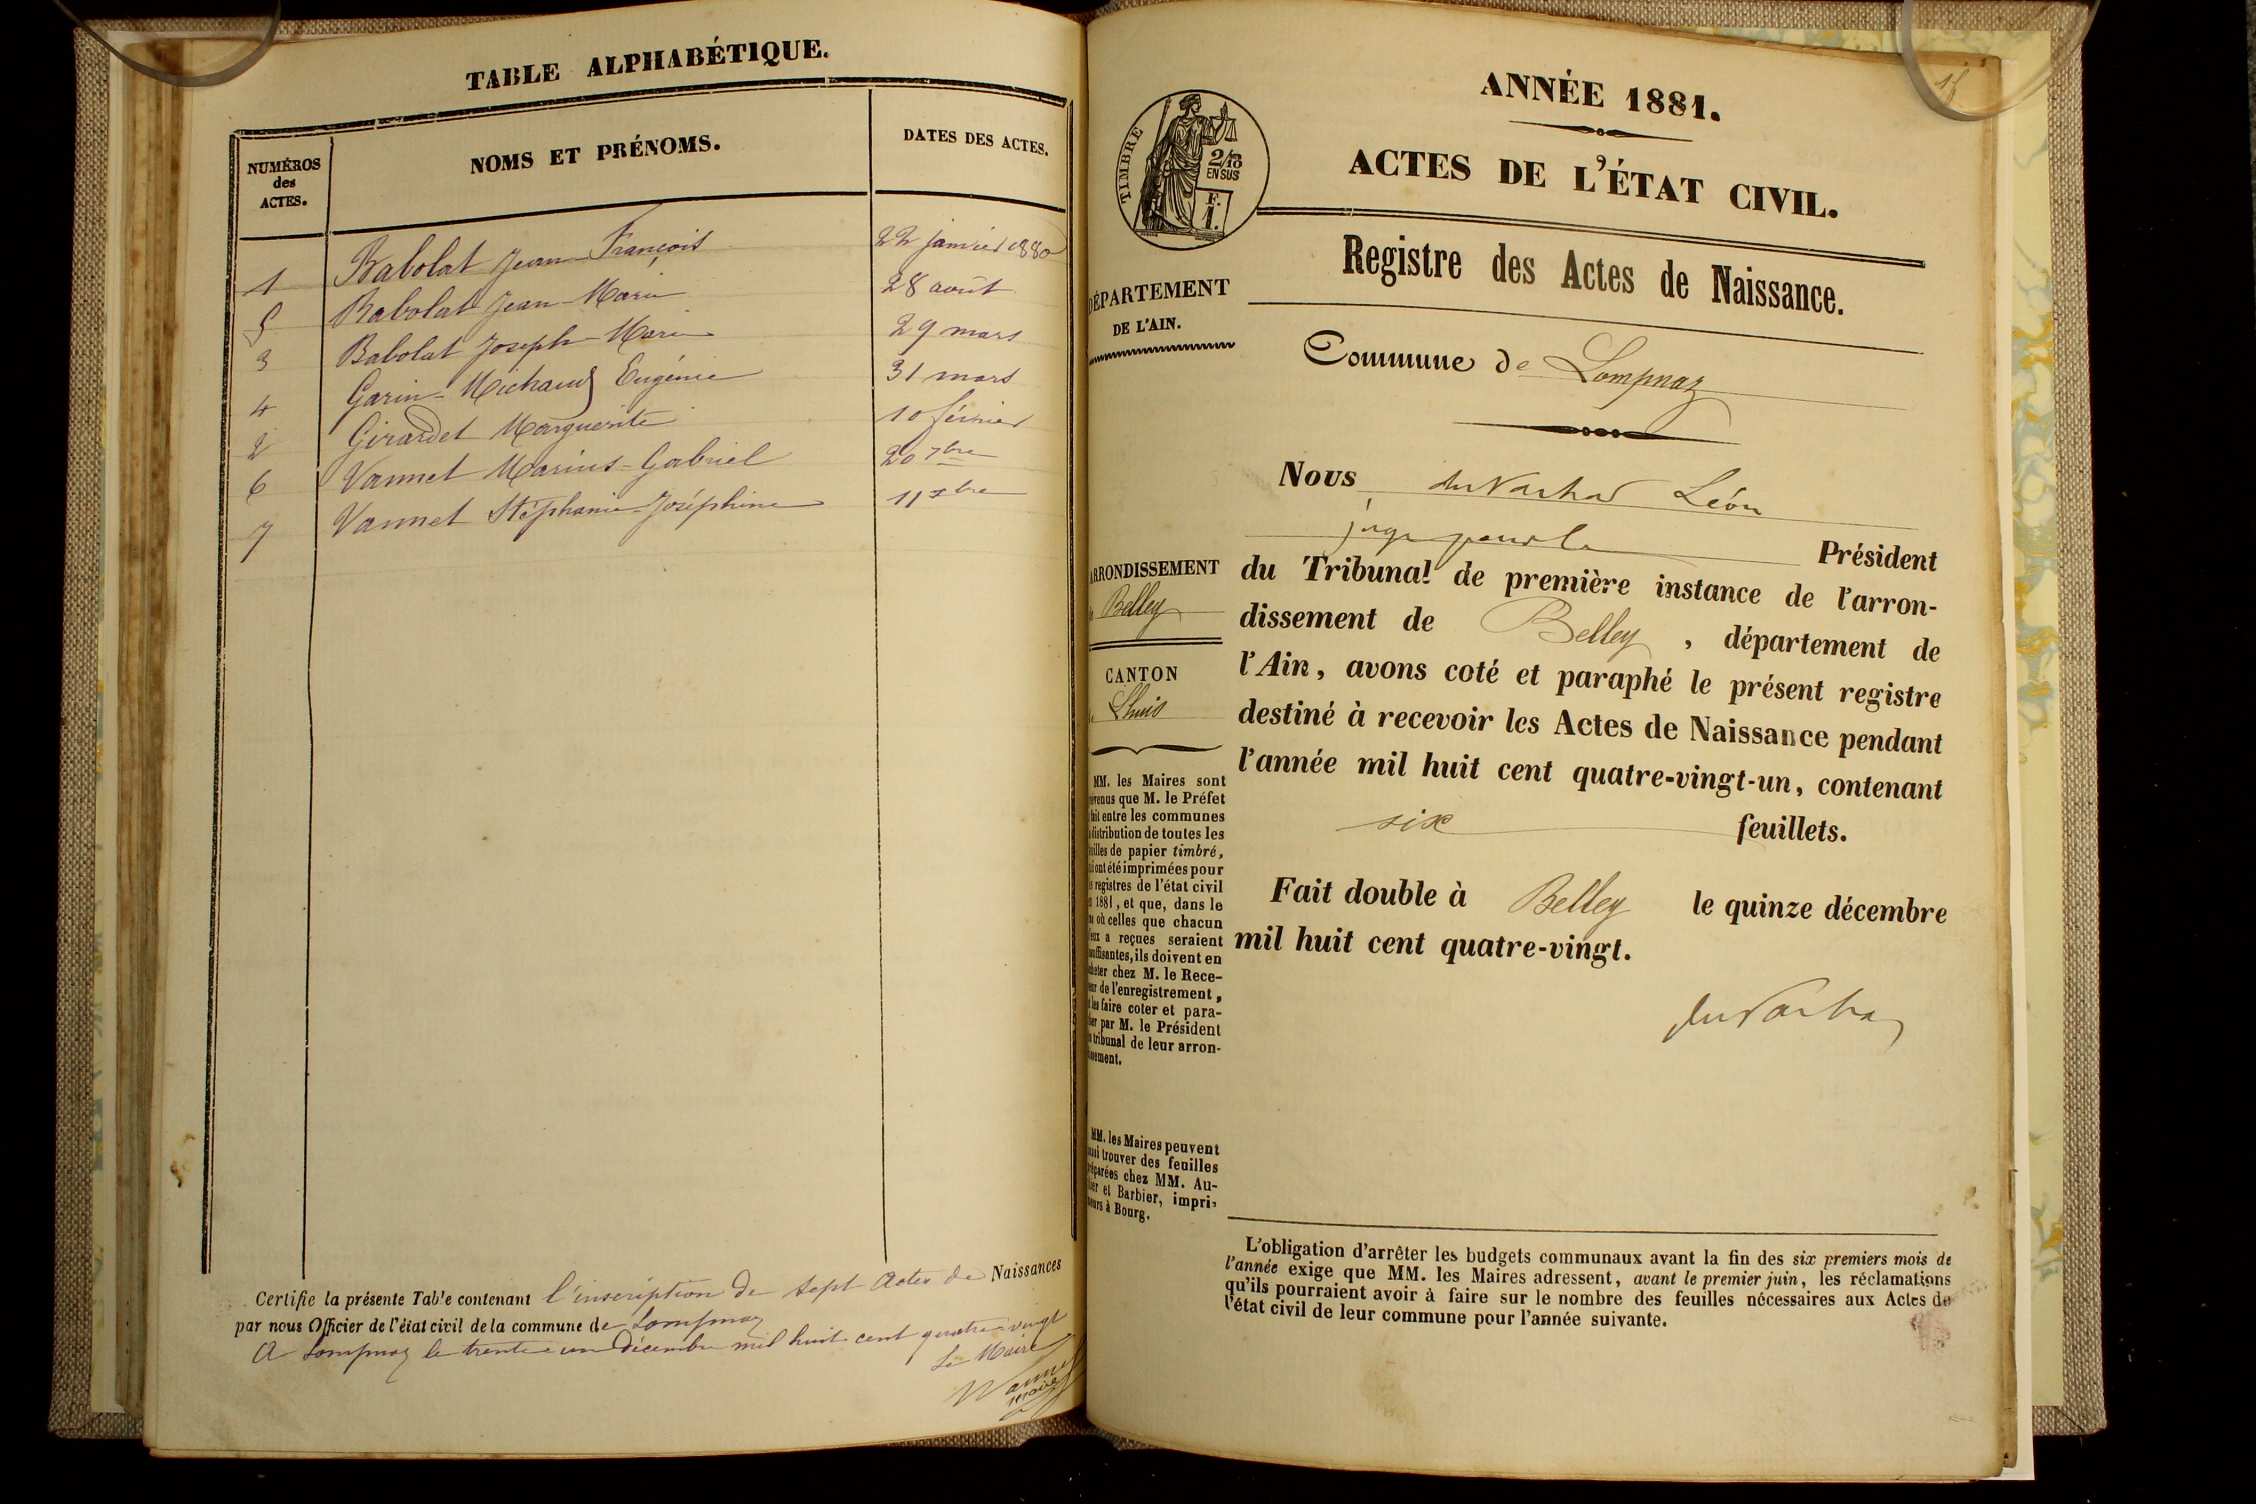 TABLE ALPHABÉTIQUE.
NUMÉROS des ACTES. NOMS ET PRÉNOMS. DATES DES ACTES.
1 Babolat Jean François 22 janvier 1880
5 Babolat Jean Marie 28 août
3 Babolat Joseph Marie 29 mars
4 Garin-Michaud Eugénie 31 mars
2 Girardet Marguerite 10 février
6 Vannet Marius-Gabriel 20 7bre
7 Vannet Stéphanie Joséphine 11 xbre
Certifie la présente Table contenant l'inscription de sept actes de Naissances
par nous Officier de l'état civil de la commune de Lompnaz
A Lompnaz le trente-un décembre mil huit cent quatre-vingt
Le Maire
15
ANNÉE 1881.
ACTES DE L'ÉTAT CIVIL.
TIMBRE
2/10
EN SUS
F.
1.
Registre des Actes de Naissance.
DÉPARTEMENT
DE L'AIN.
Commune de Lompnaz
Nous Léon
juge pour le Président
du Tribunal de première instance de l'arron-
dissement de Belley, département de
l'Ain, avons coté et paraphé le présent registre
destiné à recevoir les Actes de Naissance pendant
l'année mil huit cent quatre-vingt-un, contenant
six feuillets.
Fait double à Belley le quinze décembre
mil huit cent quatre-vingt.
ARRONDISSEMENT
Belley
CANTON
Lhuis
MM. les Maires sont
venus que M. le Préfet
fait entre les communes
distribution de toutes les
illes de papier timbré,
i ont été imprimées pour
s registres de l'état civil
1881, et que, dans le
où celles que chacun
eux a reçues seraient
suffisantes, ils doivent en
heter chez M. le Rece-
eur de l'enregistrement,
les faire coter et para-
er par M. le Président
tribunal de leur arron-
ssement.
MM. les Maires peuvent
ssi trouver des feuilles
éparées chez MM. Au-
ier et Barbier, impri-
eurs à Bourg.
L'obligation d'arrêter les budgets communaux avant la fin des six premiers mois de
l'année exige que MM. les Maires adressent, avant le premier juin, les réclamations
qu'ils pourraient avoir à faire sur le nombre des feuilles nécessaires aux Actes de
l'état civil de leur commune pour l'année suivante.